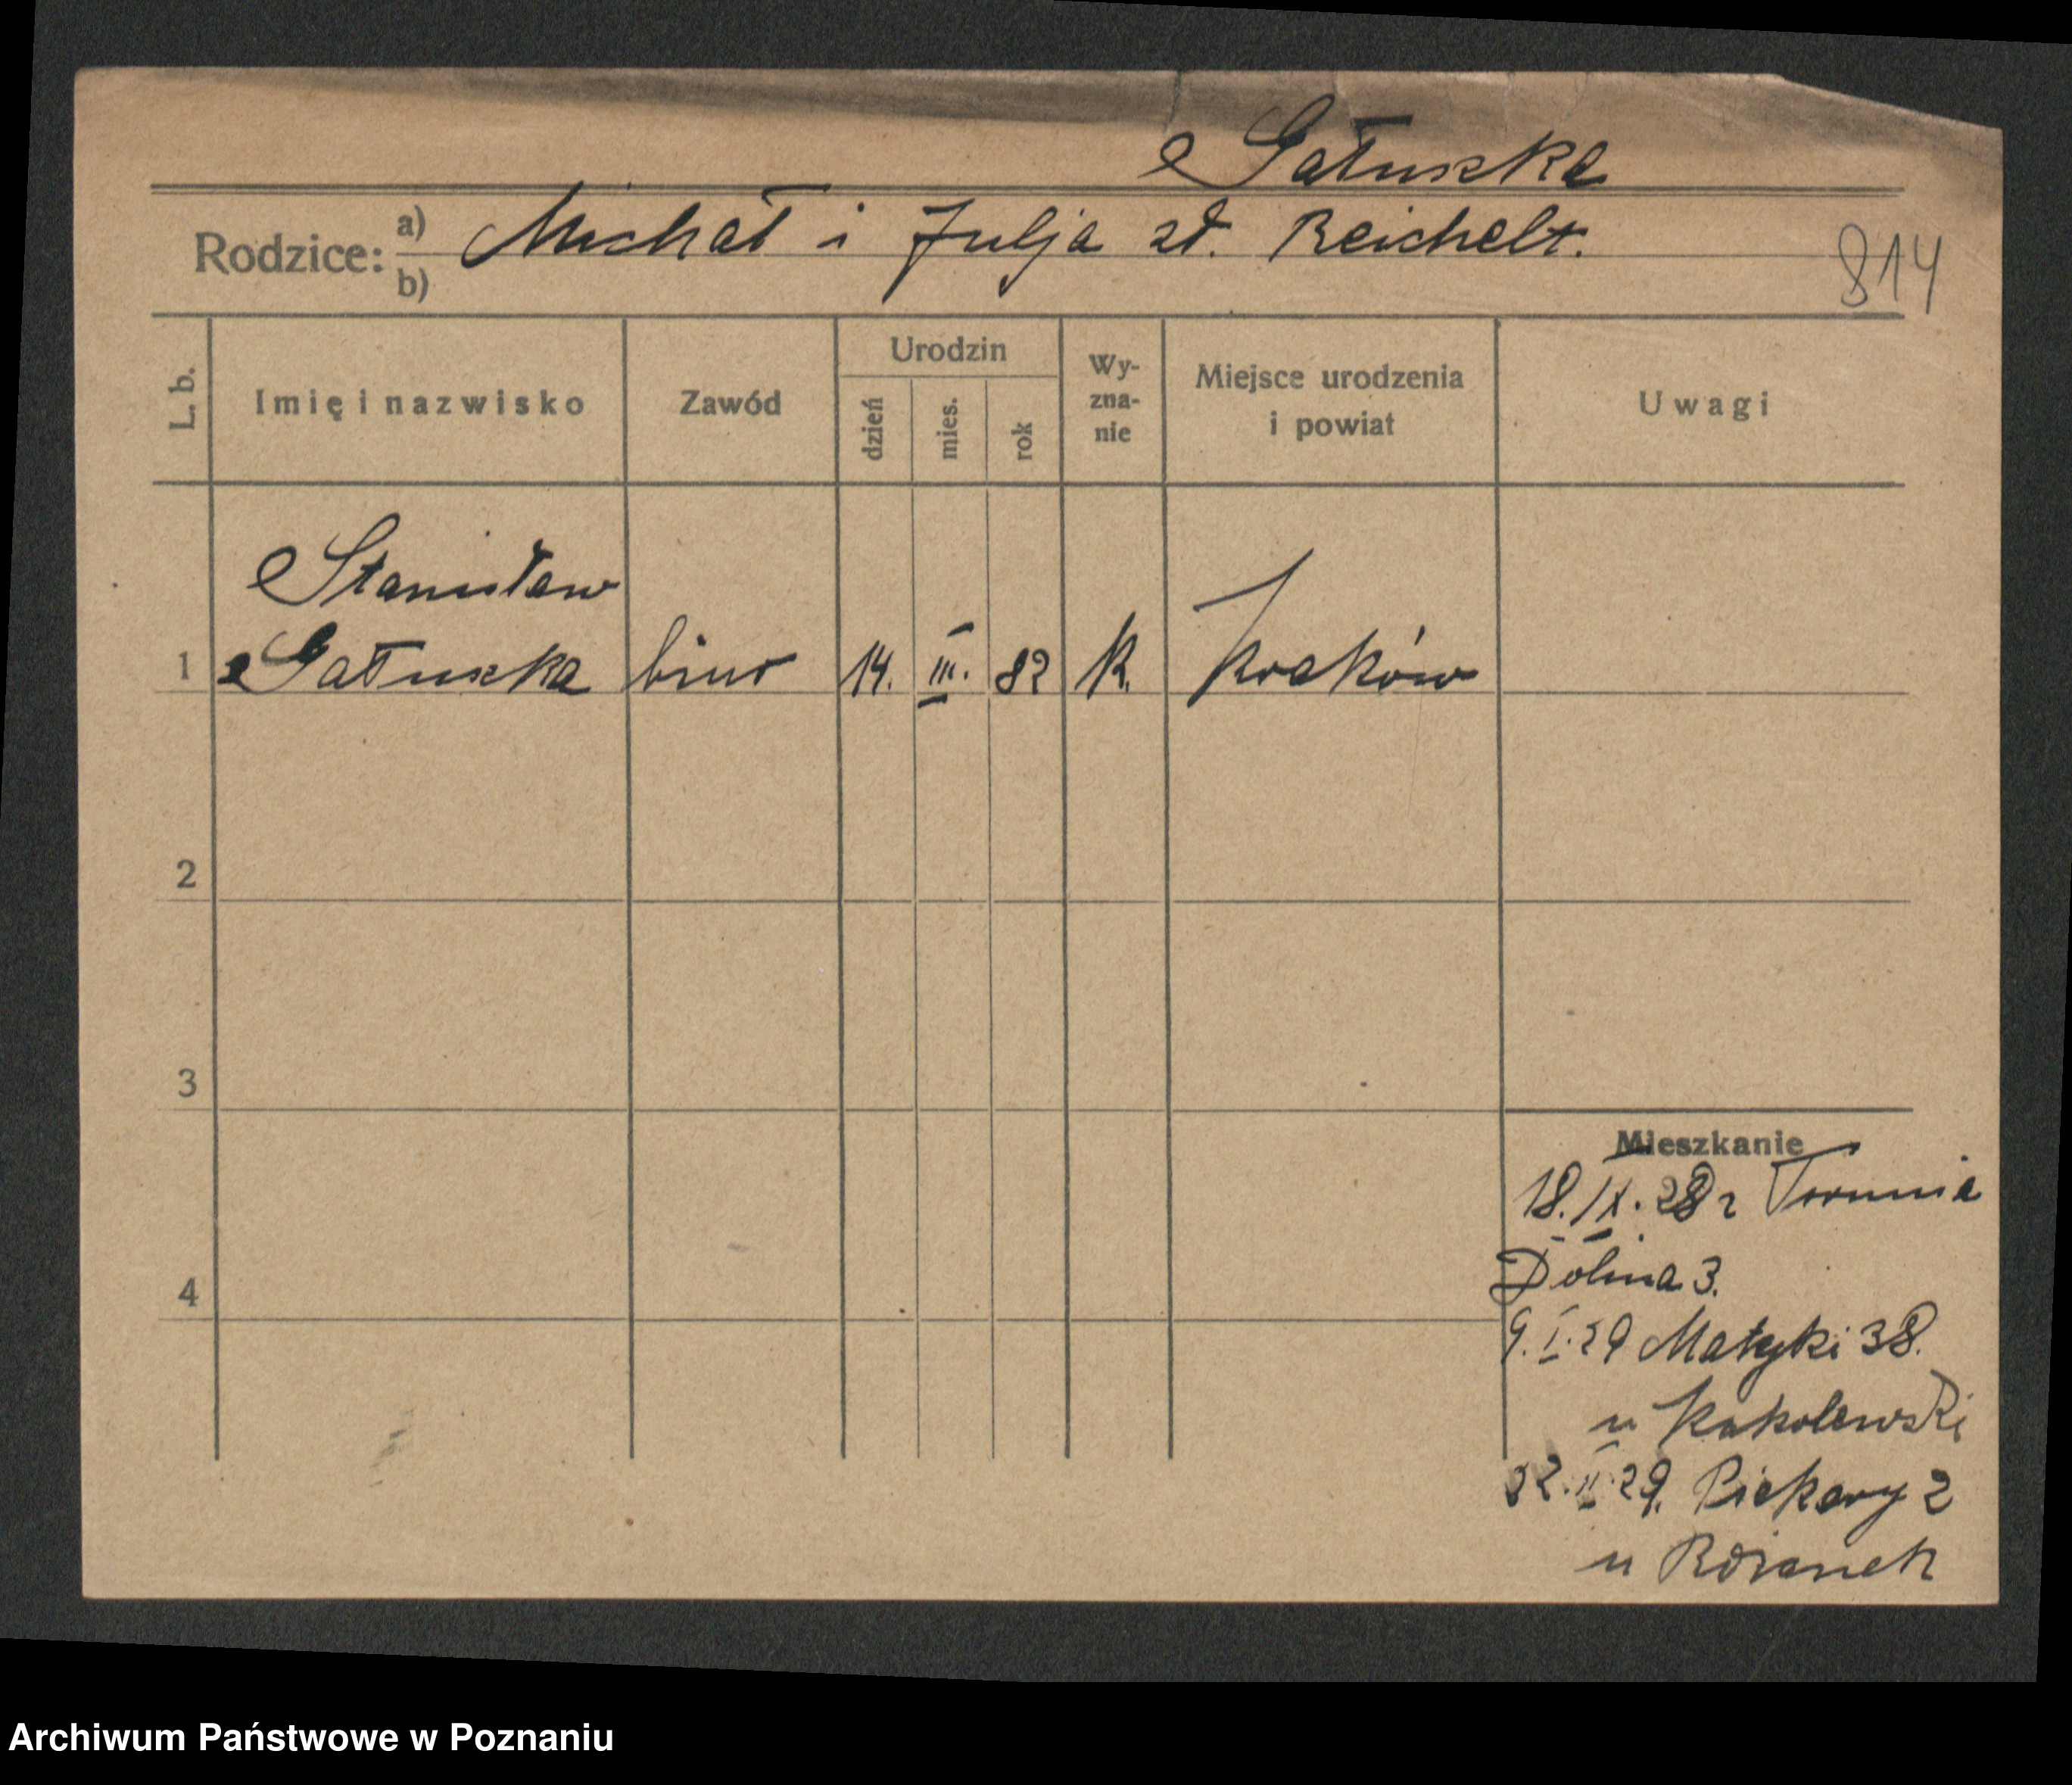 Gałuszka
Rodzice: a) Michał i Julja zł. Reichelt.
b)
814
L. b. Imię i nazwisko Zawód Urodzin dzień mies. rok Wy-zna-nie Miejsce urodzenia i powiat Uwagi
Stanisław
1 Gałuszka biur 14. III. 82 k. Kraków
2
3
Mieszkanie
18. IX. 28 z Torunia
4
Dolina 3.
9. I. 29 Matejki 38.
u Kąkolewski
22. II. 29. Piekary 2
u Różanek
Archiwum Państwowe w Poznaniu